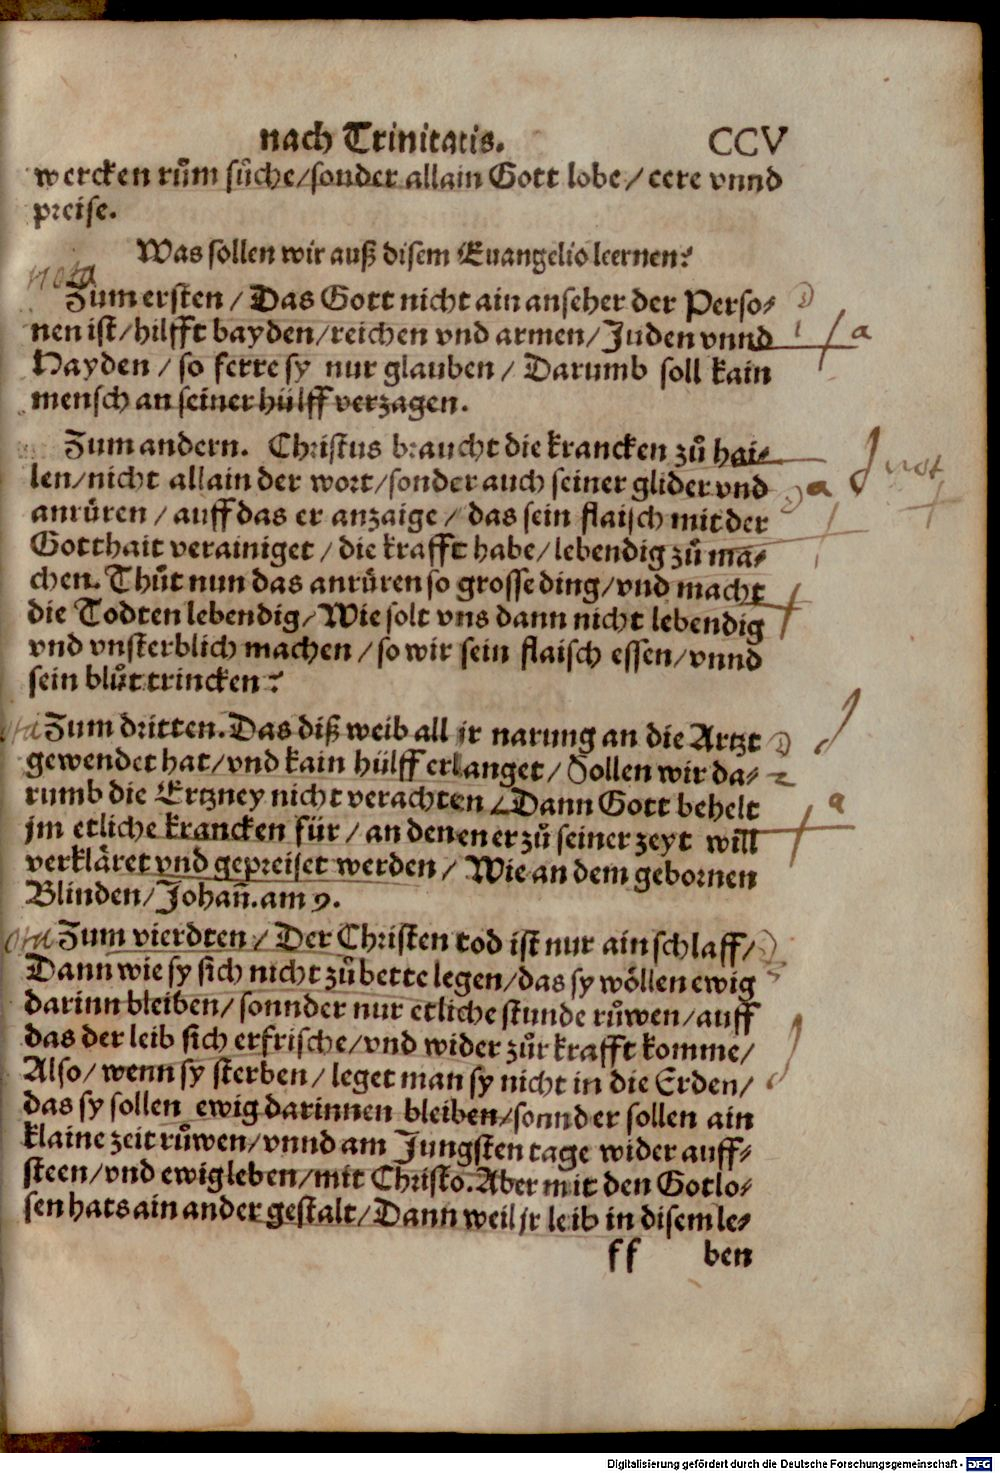 nach Trinitatis. CCV
wercken rům sůche/sonder allain Gott lobe/ eere vnnd
preise.
Was sollen wir auß disem Euangelio leernen?
nota
Zum ersten/ Das Gott nicht ain anseher der Perso-
nen ist/hilfft bayden/reichen vnd armen/Juden vnnd
Hayden/ so ferre sy nur glauben/ Darumb soll kain
mensch an seiner hülff verzagen.
Zum andern. Christus braucht die krancken zů hai-
len/nicht allain der wort/sonder auch seiner glider vnd
anrüren/ auff das er anzaige/ das sein flaisch mit der
Gotthait verainiget/ die krafft habe/ lebendig zů ma-
chen. Thůt nun das anrüren so grosse ding/vnd macht
die Todten lebendig/ Wie solt vns dann nicht lebendig
vnd vnsterblich machen/ so wir sein flaisch essen/vnnd
sein blůt trincken?
Zum dritten. Das diß weib all jr narung an die Artzt
gewendet hat/vnd kain hülff erlanget/ Sollen wir da-
rumb die Ertzney nicht verachten/ Dann Gott behelt
jm etliche krancken für/ an denen er zů seiner zeyt will
verkläret vnd gepreiset werden/ Wie an dem gebornen
Blinden/ Johañ. am 9.
Zum vierdten/ Der Christen tod ist nur ain schlaff/
Dann wie sy sich nicht zů bette legen/das sy wöllen ewig
darinn bleiben/ sonnder nur etliche stunde růwen/auff
das der leib sich erfrische/vnd wider zůr krafft komme/
Also/ wenn sy sterben/ leget man sy nicht in die Erden/
das sy sollen ewig darinnen bleiben/sonnder sollen ain
klaine zeit růwen/vnnd am Jungsten tage wider auff-
steen/vnd ewig leben/mit Christo. Aber mit den Gotlo-
sen hats ain ander gestalt/ Dann weil jr leib in disem le-
ff ben
Digitalisierung gefördert durch die Deutsche Forschungsgemeinschaft - DFG